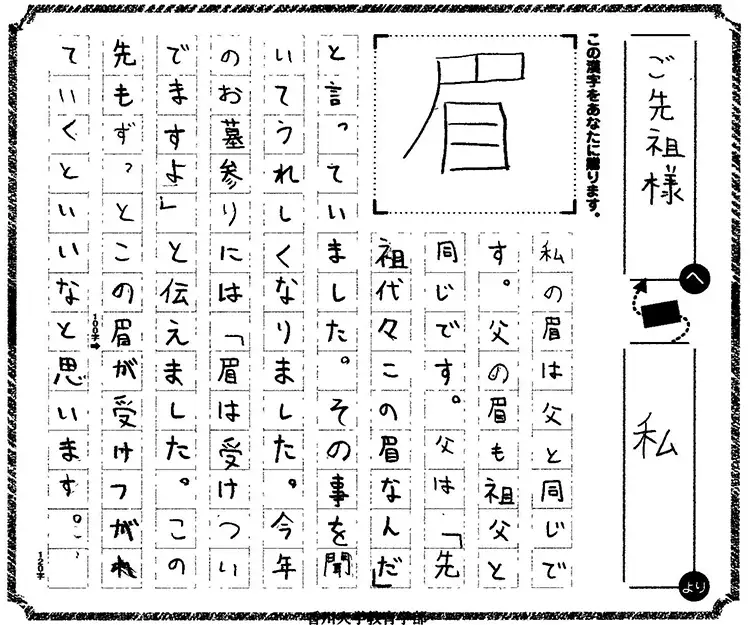 ご先祖様
へ
私
より
この漢字をあなたに贈ります。
眉
私の眉は父と同じで
す。父の眉も祖父と
同じです。父は「先
祖代々この眉なんだ」
と言っていました。その事を聞
いてうれしくなりました。今年
のお墓参りには「眉は受けつい
でますよ」と伝えました。この
先もずっとこの眉が受けつがれ
100字➡
ていくといいなと思います。
120字
香川大学教育学部